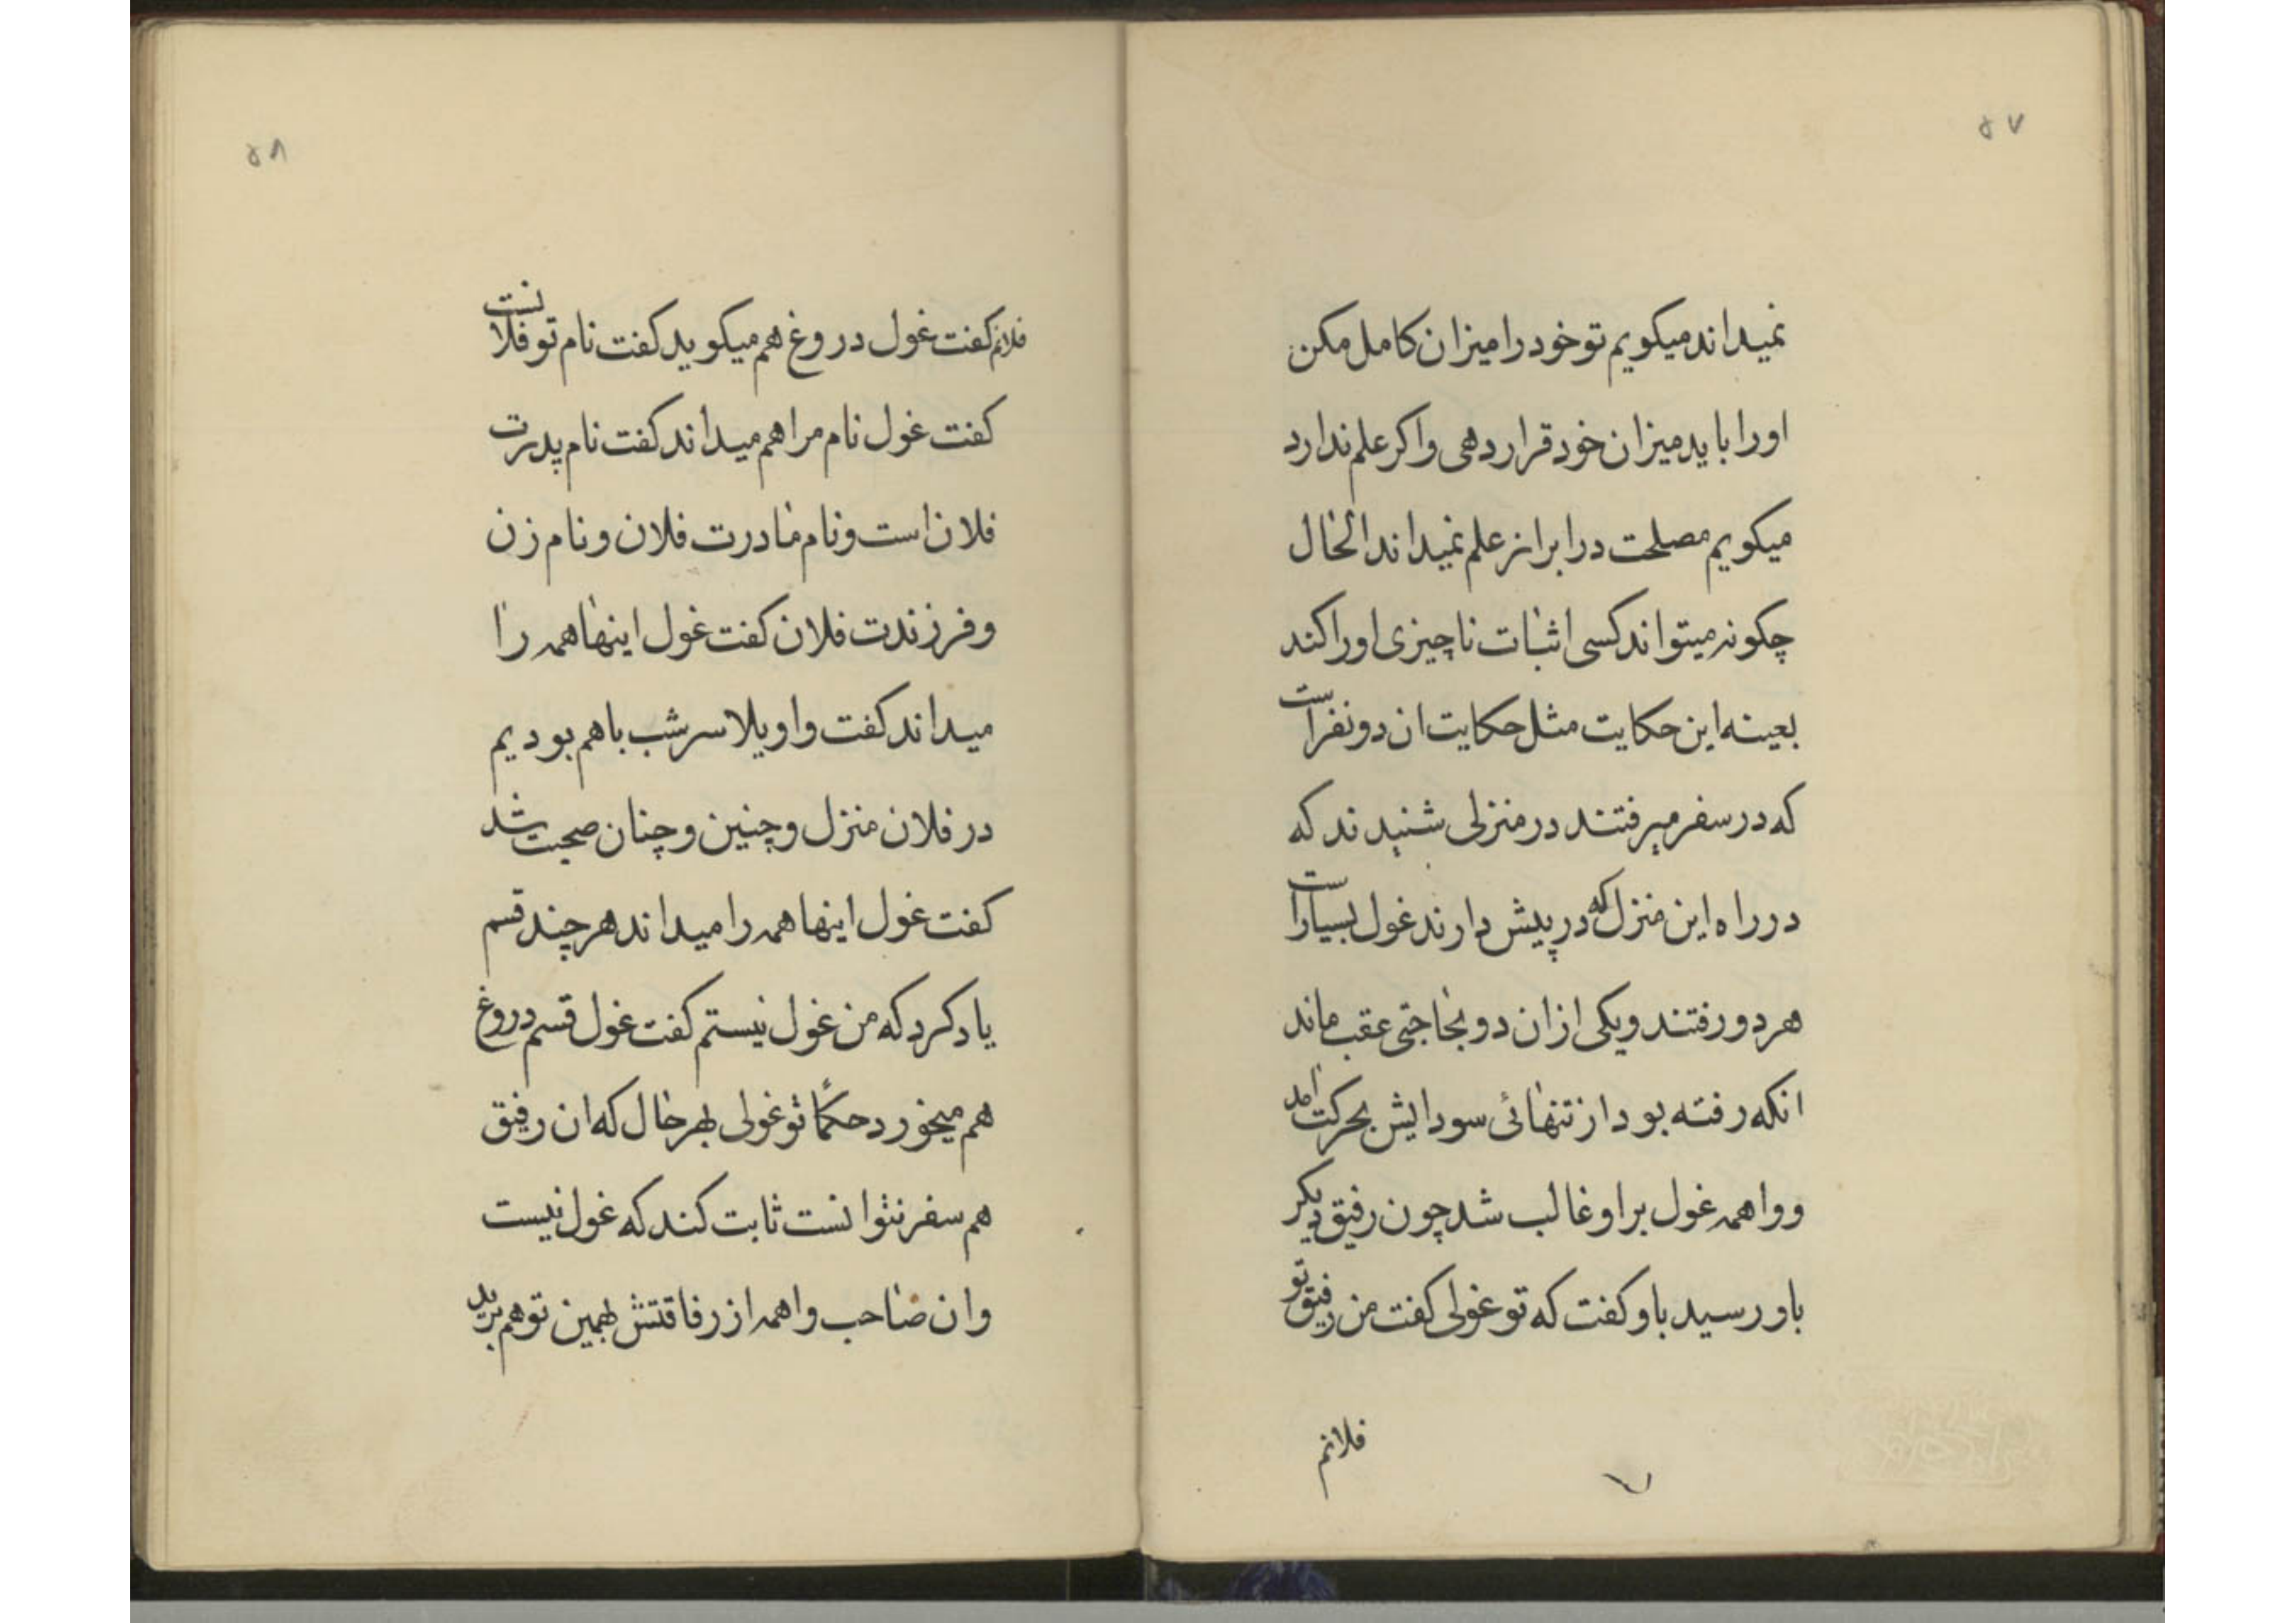 ۵۷
نمیداند میکویم تو خود را میزان کامل مکن
او را باید میزان خود قرار دهی و اکر علم ندارد
میکویم مصلحت در ابراز علم نمیداند الحال
چکونه میتواند کسی اثبات ناچیزی او را کند
بعینه این حکایت مثل حکایت ان دو نفر است
که در سفر میرفتند در منزلی شنیدند که
در راه این منزل که در پیش دارند غول بسیار است
هر دو رفتند و یکی از ان دو بحاجتی عقب ماند
انکه رفته بود از تنهائی سودایش بحرکت امد
و واهمه غول بر او غالب شد چون رفیق دیکر
باو رسید باو کفت که تو غولی کفت من رفیق تو
فلانم
۵۸
فلانم کفت غول دروغ هم میکوید کفت نام تو فلانست
کفت غول نام مرا هم میداند کفت نام پدرت
فلان است و نام مادرت فلان و نام زن
و فرزندت فلان کفت غول اینها همه را
میداند کفت واویلا سر شب باهم بودیم
در فلان منزل و چنین و چنان صحبت شد
کفت غول اینها همه را میداند هر چند قسم
یاد کرد که من غول نیستم کفت غول قسم دروغ
هم میخورد حکمًا تو غولی بهر حال که ان رفیق
هم سفر نتوانست ثابت کند که غول نیست
و ان صاحب واهمه از رفاقتش بهمین توهم برید